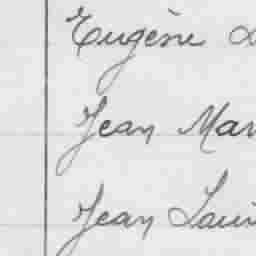 Eugène
Jean Mar
Jean Loui